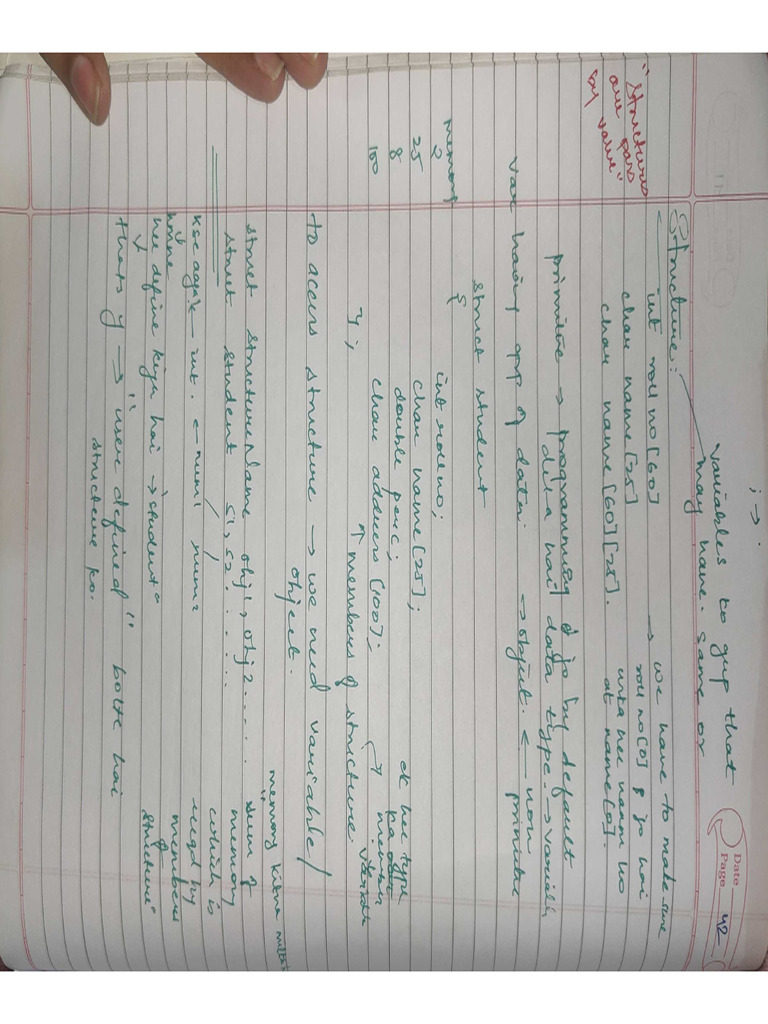 Date
Page 42
; →
variables to grp that
may have same or
Structure:
"Structures are pass by value"
int roll no [60] → we have to make sure
char name [25] roll no [0] & jo hai
char name [60][25]. uska hee naam ho
at name [0].
primitive → programming & jo by default
dila hai data type. → variable
var having grp of data. → object. ← non primitive
struct student
memory {
2 int roll no;
25 char name [25];
8 double perc;
100 char address [100];
ek hee type
ka
member
variable
}; ↑ members of structure
to access structure → we need variable/
object.
memory kitna
struct structureName obj1, obj2 ......
struct student s1, s2 ......
"sum of
memory
which is
reqd by
members
of
structure"
int. ← num1 num2
hee define kiya hai → "student"
thats y → "user defined" bolte hai
structure ko.